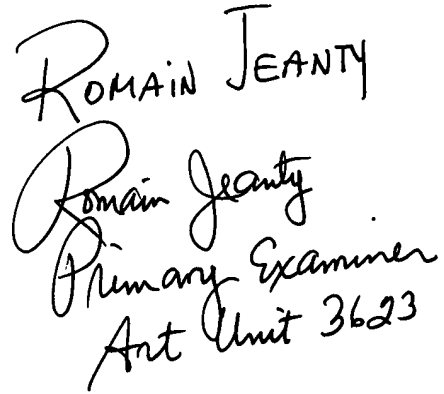 ROMAIN JEANTY
Romain Jeanty
Primary Examiner
Art Unit 3623